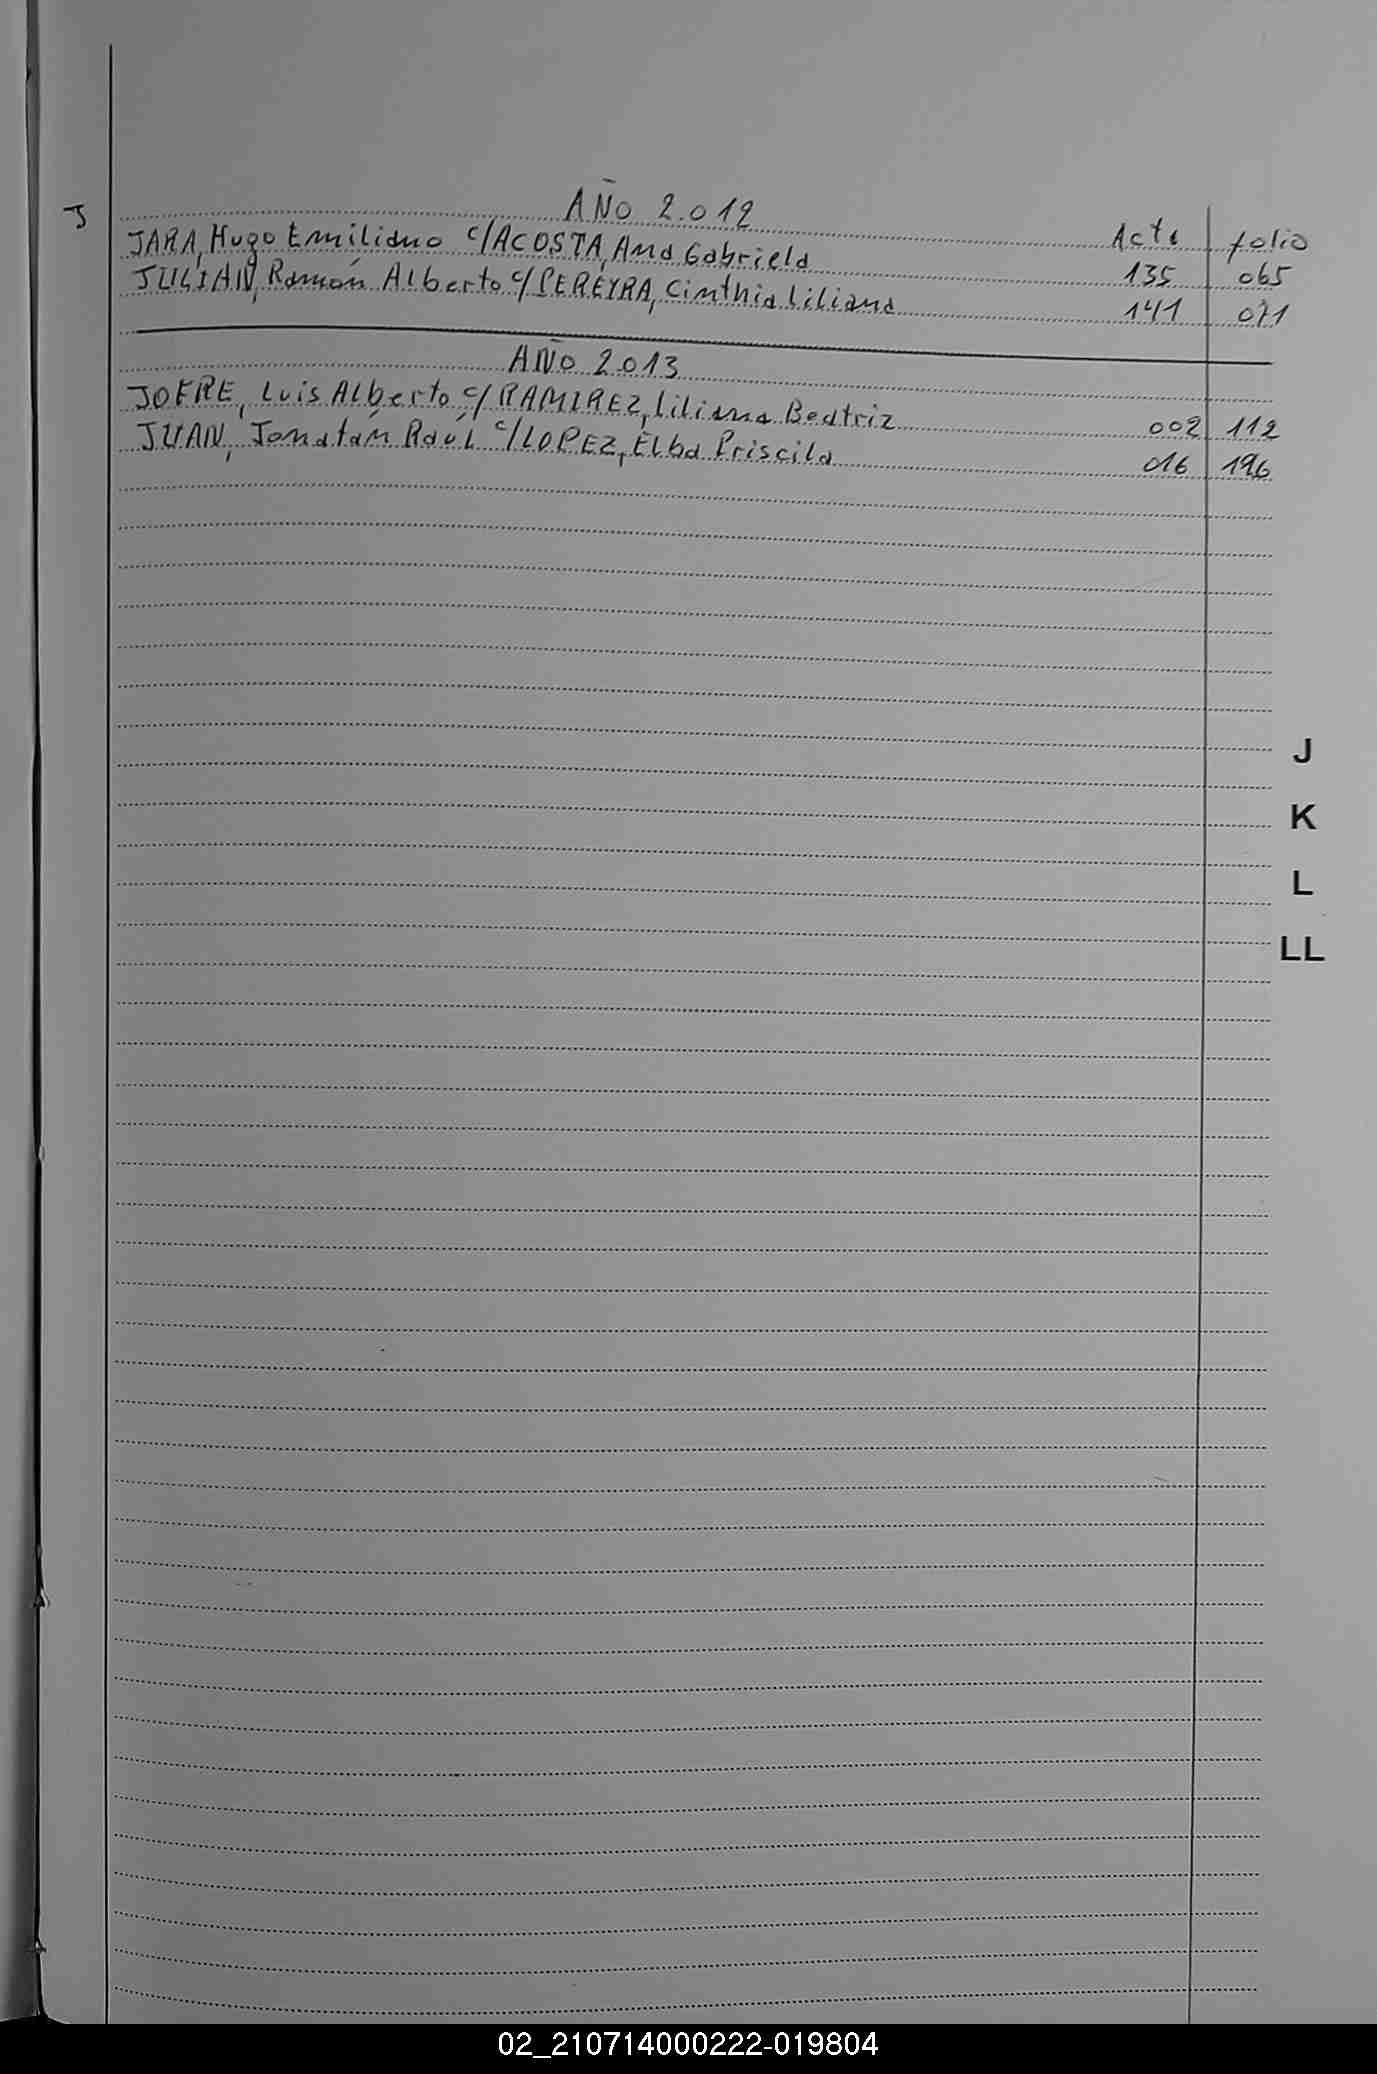 J
AÑO 2.012
Acta folio
JARA, Hugo Emiliano c/ACOSTA, Ana Gabriela 135 065
JULIAN, Ramón Alberto c/PEREYRA, Cinthia Liliana 141 071
AÑO 2.013
JOFRE, Luis Alberto c/RAMIREZ, Liliana Beatriz 002 112
JUAN, Jonatan Raúl c/LOPEZ, Elba Priscila 016 196
J
K
L
LL
02_210714000222-019804